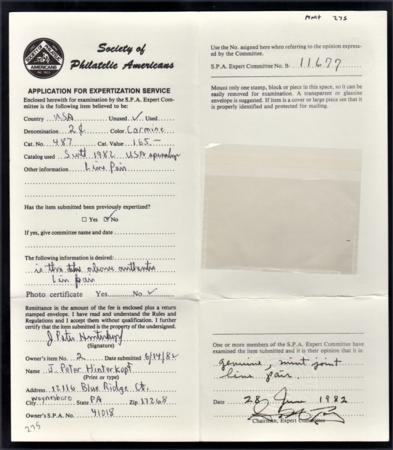 Society of
Philatelic Americans
APPLICATION FOR EXPERTIZATION SERVICE
Enclosed herewith for examination by the S.P.A. Expert Com-
mittee is the following item believed to be:
Country USA Unused ✓ Used
Denomination 2¢ Color Carmine
Cat. No. 487 Cat. Value 165.—
Catalog used Scott 1982 USA
Other information Line Pair
Has the item submitted been previously expertized?
□ Yes ☑ No
If yes, give committee name and date
The following information is desired:
is this the above authentic
Line pair
Photo certificate Yes No ✓
Remittance in the amount of the fee is enclosed plus a return
stamped envelope. I have read and understand the Rules and
Regulations and I accept them without qualification. I further
certify that the item submitted is the property of the undersigned.
J. Peter Hinterkopf
(Signature)
Owner's item No. 2 Date submitted 6/14/82
Name J. Peter Hinterkopf
(Print or type)
Address 12116 Blue Ridge Ct.
City Waynesboro State PA Zip 17268
Owner's S.P.A. No. 41018
275
275
Use the No. assigned here when referring to the opinion expres-
ed by the Committee.
S.P.A. Expert Committee No. B- 11677
Mount only one stamp, block or piece in this space, so it can be
easily removed for examination. A transparent or glassine
envelope is suggested. If item is a cover or large piece see that it
is properly identified and protected for mailing.
One or more members of the S.P.A. Expert Committee have
examined the item submitted and it is their opinion that it is:
genuine, mint joint
line pair.
Date 28 June 1982
Chairman, Expert Committee